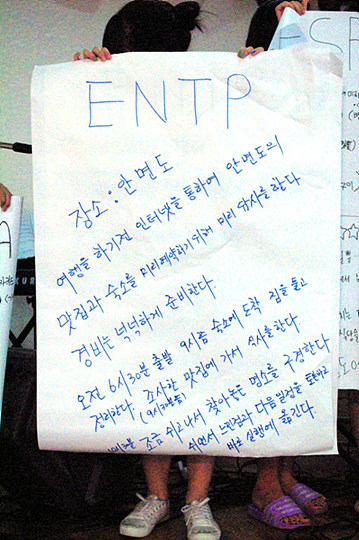 ENTP
장소 : 안면도
여행을 하기전 인터넷을 통하여 안면도의
맛집과 숙소를 미리예약하기위해 미리 답사를 한다
경비는 넉넉하게 준비한다.
오전 6시30분 출발 9시쯤 숙소에 도착 짐을 풀고
정리한다. 조사한 맛집에 가서 식사를 한다.
(9시30분쯤)
조금 쉬고나서 찾아놓은 명소를 구경한다
쉬면서 느낀점과 다음일정을
바로 실행에 옮긴다.
ESF
A